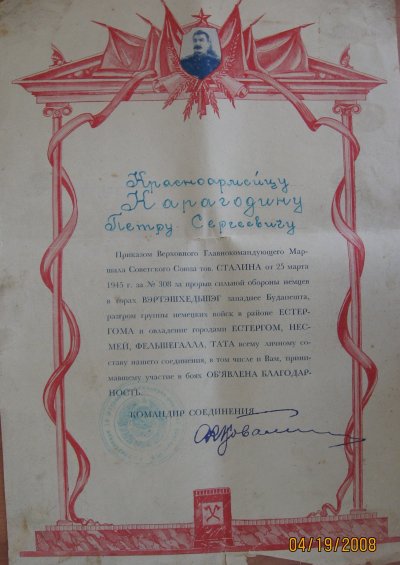 Красноармейцу
Карагодину
Петру Сергеевичу
Приказом Верховного Главнокомандующего Мар-
шала Советского Союза тов. СТАЛИНА от 25 марта
1945 г. за № 308 за прорыв сильной обороны немцев
в горах ВЭРТЭШХЕДЬШЭГ западнее Будапешта,
разгром группы немецких войск в районе ЕСТЕР-
ГОМА и овладение городами ЕСТЕРГОМ, НЕС-
МЕЙ, ФЕЛЬШЕГАЛЛА, ТАТА всему личному со-
ставу нашего соединения, в том числе и Вам, прини-
мавшему участие в боях ОБ'ЯВЛЕНА БЛАГОДАР-
НОСТЬ.
КОМАНДИР СОЕДИНЕНИЯ
04/19/2008